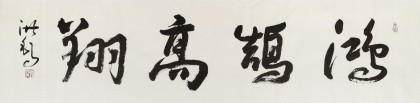 鴻鵠高翔